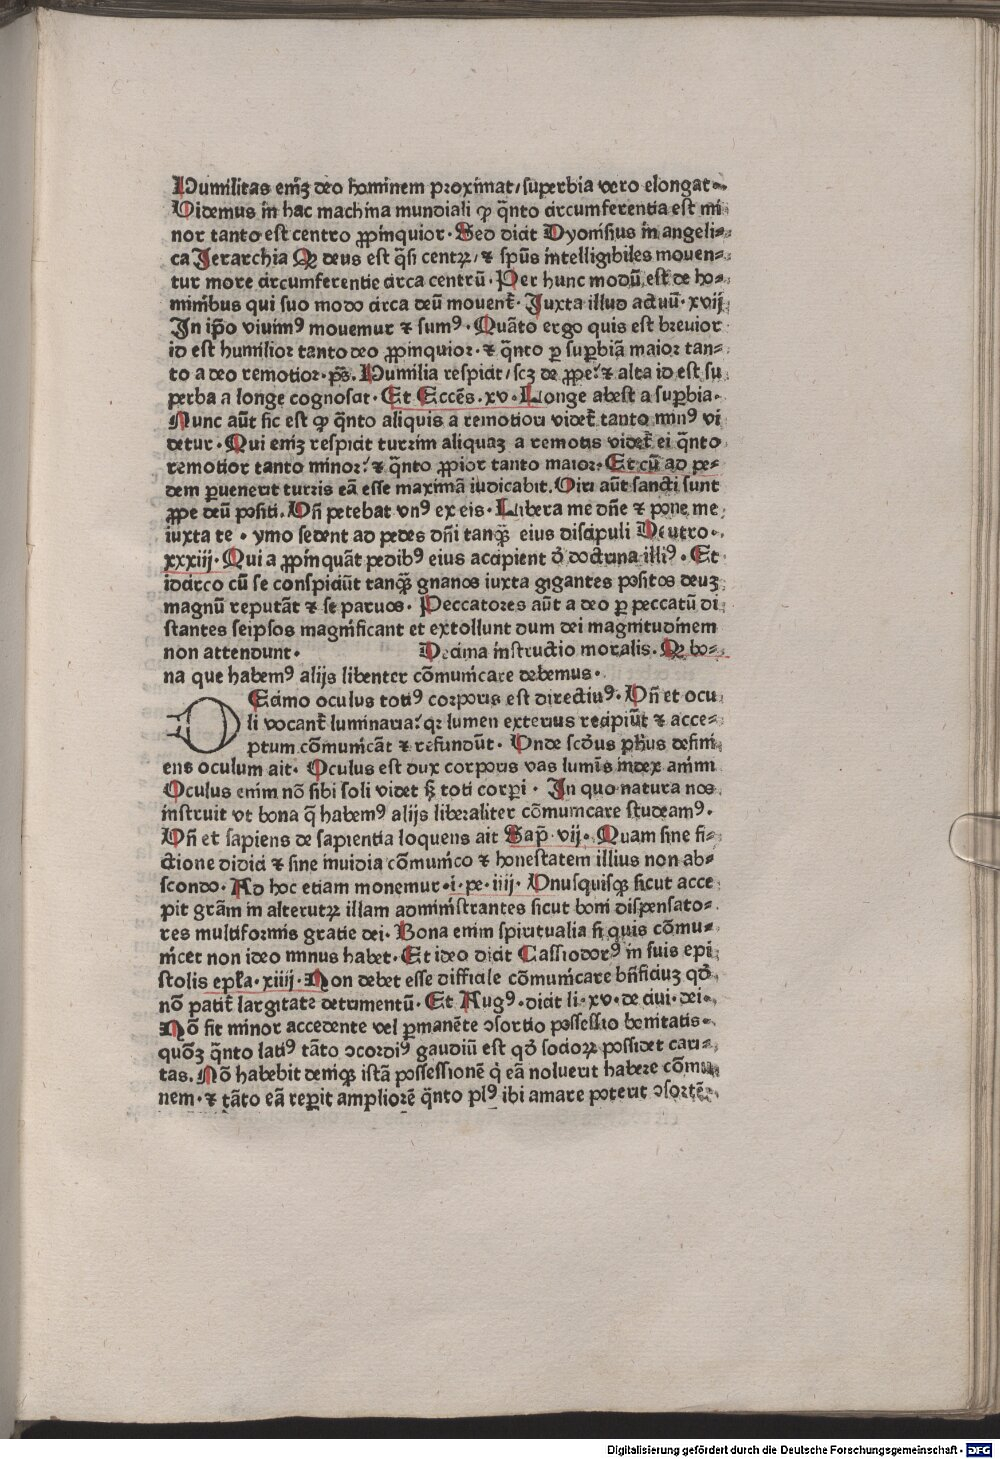 Humilitas em̃ʒ deo hominem proximat/superbia vero elongat·
Uidemus in hac machina mundiali ꝙ q̃nto circumferentia est mi⸗
nor tanto est centro ꝓpinquior· Sed dicit Dyonisius in angeli⸗
ca Jerarchia Qꝛ deus est q̃si centꝝ/⁊ spũs intelligibiles mouen⸗
tur more circumferentie circa centrũ· Per hunc modũ est de ho⸗
minibus qui suo modo circa deũ mouent̃· Juxta illud actuũ· xvij
In ip̃o viuimꝰ mouemur ⁊ sumꝰ· Quãto ergo quis est breuior
id est humilior tanto deo ꝓpinquior· ⁊ q̃nto ꝑ suꝑbiã maior tan⸗
to a deo remotior· p̃s. Humilia respicit/scʒ de ꝓpe: ⁊ alta id est su
perba a longe cognoscit· Et Eccẽs. xv· Longe abest a suꝑbia·
Nunc aũt sic est ꝙ q̃nto aliquis a remotiori videt̃ tanto minꝰ vi
detur· Qui em̃ʒ respicit turrim aliquaʒ a remotis videt̃ ei q̃nto
remotior tanto minor: ⁊ q̃nto ꝓpior tanto maior· Et cũ ad pe⸗
dem ꝑuenerit turris eã esse maximã iudicabit. Uiri aũt sancti sunt
ꝓpe deũ positi. Uñ petebat vnꝰ ex eis· Libera me dñe ⁊ pone me
iuxta te · ymo sedent ad pedes dñi tanꝙ̃ eius discipuli Deutro·
xxxiij· Qui a ꝓpinquãt pedibꝰ eius accipient õ doctrina illiꝰ· Et
idcirco cũ se conspiciũt tanꝙ̃ gnanos iuxta gigantes positos deuʒ
magnũ reputãt ⁊ se paruos· Peccatores aũt a deo ꝑ peccatũ di
stantes seipsos magnificant et extollunt dum dei magnitudinem
non attendunt· Decima instructio moralis. Qꝛ bo⸗
na que habemꝰ alijs libenter cõmunicare debemus·
D Ecimo oculus totiꝰ corporis est directiuꝰ· Uñ et ocu
li vocant̃ luminaria: qꝛ lumen exterius recipiũt ⁊ acce⸗
ptum cõmunicãt ⁊ refundũt· Unde scõus pħus defini
ens oculum ait· Oculus est dux corporis vas lumĩs index animi
Oculus enim nõ sibi soli videt sʒ toti corꝑi · In quo natura nos
instruit vt bona q̃ habemꝰ alijs liberaliter cõmunicare studeamꝰ·
Uñ et sapiens de sapientia loquens ait Sap̃· vij· Quam sine fi⸗
ctione didici ⁊ sine inuidia cõmunico ⁊ honestatem illius non ab⸗
scondo· Ad hoc etiam monemur·i· pe· iiij· Unusquisqʒ sicut acce
pit grãm in alterutꝝ illam administrantes sicut boni dispensato⸗
res multiformis gratie dei· Bona enim spiritualia si quis cõmu⸗
nicet non ideo minus habet· Et ideo dicit Cassiodorꝰ in suis epi
stolis epɫa· xiiij· Non debet esse difficile cõmunicare bñficiuʒ qõ
nõ patit̃ largitate detrimentũ· Et Augꝰ· dicit li· xv· de ciui· dei·
Nõ fit minor accedente vel ꝑmanẽte ↄsortio possessio bonitatis·
quõʒ q̃nto latiꝰ tãto ↄcordiꝰ gaudiũ est qõ socioꝝ possidet cari⸗
tas. Nõ habebit deniqʒ istã possessionẽ q̇ eã noluerit habere cõmu
nem· ⁊ tãto eã reꝑit ampliorẽ q̃nto plꝰ ibi amare poterit ↄsortẽ
Digitalisierung gefördert durch die Deutsche Forschungsgemeinschaft - DFG